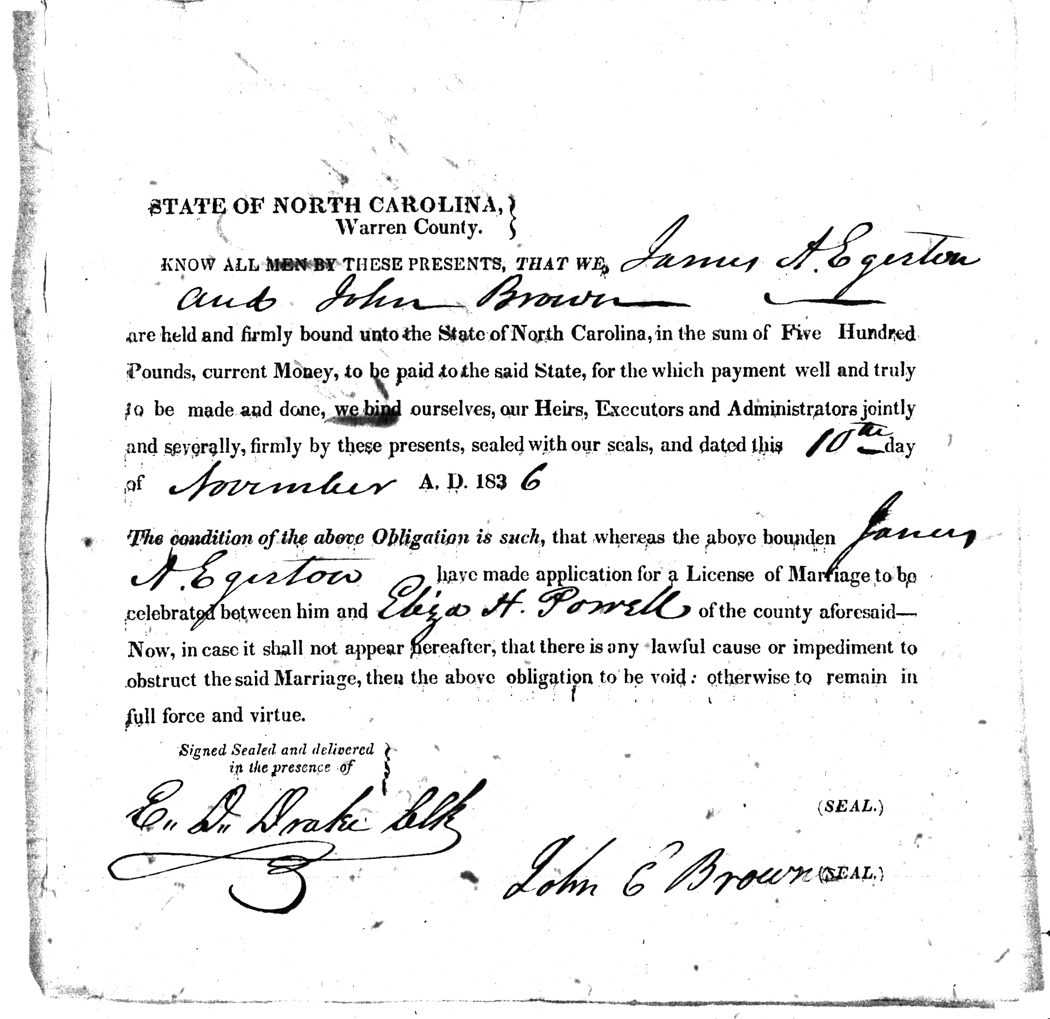 STATE OF NORTH CAROLINA,
Warren County.
KNOW ALL MEN BY THESE PRESENTS, THAT WE, James A. Egerton
and John Brown
are held and firmly bound unto the State of North Carolina, in the sum of Five Hundred
Pounds, current Money, to be paid to the said State, for the which payment well and truly
to be made and done, we bind ourselves, our Heirs, Executors and Administrators jointly
and severally, firmly by these presents, sealed with our seals, and dated this 10th day
of November A. D. 1836
The condition of the above Obligation is such, that whereas the above bounden James
A. Egerton have made application for a License of Marriage to be
celebrated between him and Eliza H. Powell of the county aforesaid—
Now, in case it shall not appear hereafter, that there is any lawful cause or impediment to
obstruct the said Marriage, then the above obligation to be void: otherwise to remain in
full force and virtue.
Signed Sealed and delivered
in the presence of
E. D. Drake Clk
(SEAL.)
John E Brown (SEAL.)